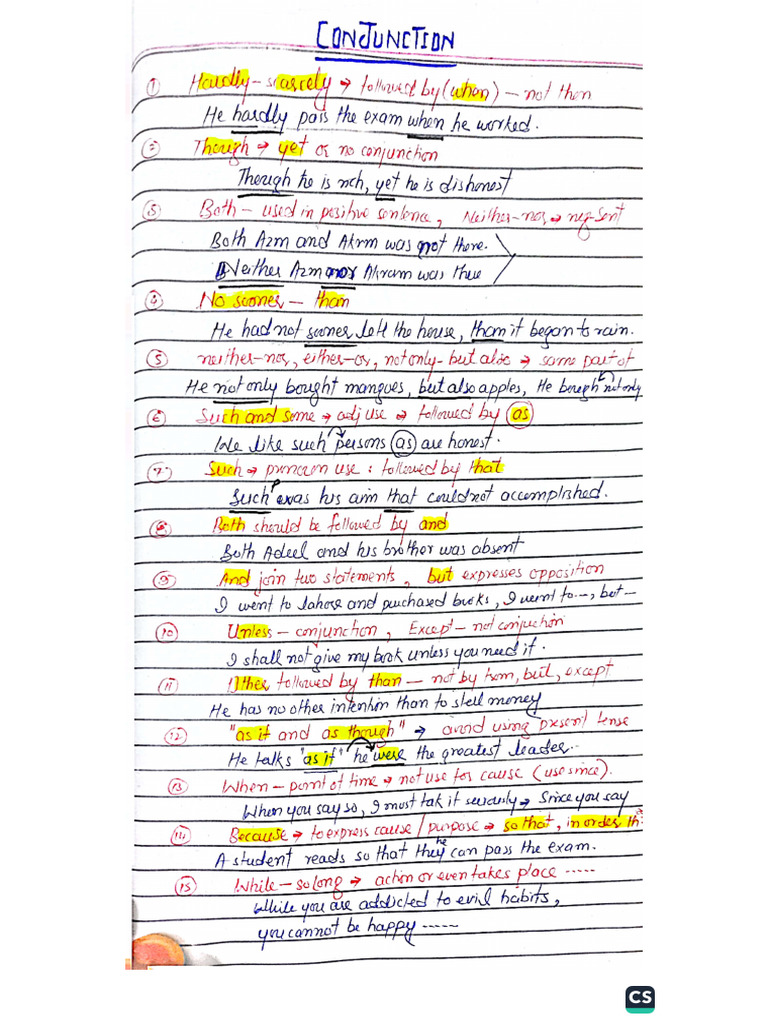 CONJUNCTION
① Hardly - scarcely → followed by (when) - not then
He hardly pass the exam when he worked.
② Though → yet or no conjunction
Though he is rich, yet he is dishonest
③ Both - used in positive sentence, Neither-nor → neg sent
Both Azm and Akrm was not there.
Neither Azm nor Akram was thue
④ No sooner - than
He had not sooner left the house, than it began to rain.
⑤ neither-nor, either-or, not only - but also → same part of
He not only bought mangoes, but also apples, He bough not only
⑥ Such and same → adj use → followed by as
We like such persons as are honest.
⑦ Such → pronoun use : followed by that
Such was his aim that could not accomplished.
⑧ Both should be followed by and
Both Adeel and his brother was absent
⑨ And join two statements, but expresses opposition
I went to lahore and purchased books, I went to --, but -
⑩ Unless - conjunction, Except - not conjuction
I shall not give my book unless you need it.
⑪ Other followed by than - not by from, but, except
He has no other intention than to stell money
⑫ "as if and as though" → avoid using present tense
He talks "as if" he were the greatest leader..
⑬ When - point of time → not use for cause (use since).
When you say so, I must tak it seriously → Since you say
⑭ Because → to express cause/purpose → so that, in order th
A student reads so that they he can pass the exam.
⑮ While - so long → action or even takes place .....
While you are addicted to evil habits,
you cannot be happy .....
CS